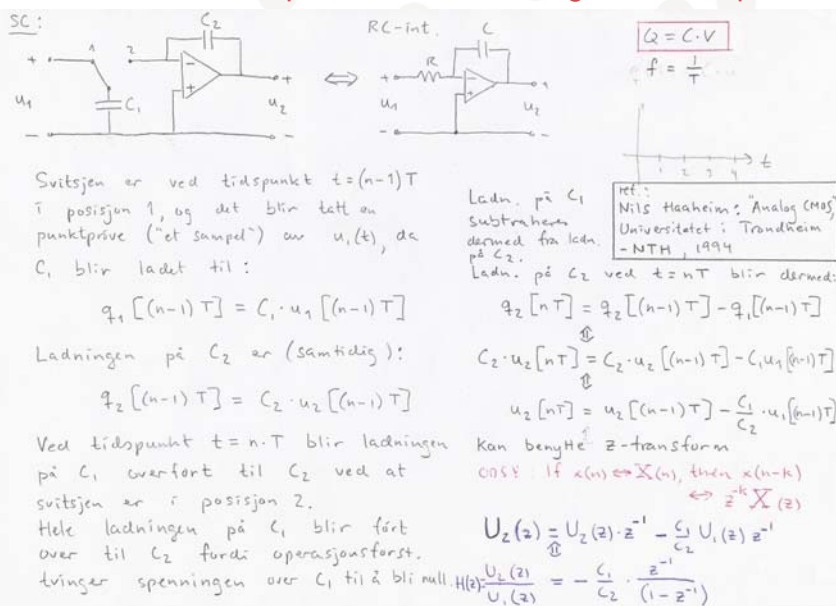 SC:
1
2
C2
+
u1
C1
-
+
u2
-
⇔
RC-int.
C
R
+
u1
-
1
u2
-
Q = C·V
f = 1/T
1 2 3 4 t
Svitsjen er ved tidspunkt t=(n-1)T
i posisjon 1, og det blir tatt en
punktprøve ("et sampel") av u1(t), da
C1 blir ladet til:
q1[(n-1)T] = C1·u1[(n-1)T]
Ladningen på C2 er (samtidig):
q2[(n-1)T] = C2·u2[(n-1)T]
Ved tidspunkt t=n·T blir ladningen
på C1 overført til C2 ved at
svitsjen er i posisjon 2.
Hele ladningen på C1 blir ført
over til C2 fordi operasjonsforst.
tvinger spenningen over C1 til å bli null.
Ladn. på C1
subtraheres
dermed fra ladn.
på C2.
ref.:
Nils Haaheim: "Analog CMOS"
Universitetet i Trondheim
-NTH, 1994
Ladn. på C2 ved t=nT blir dermed:
q2[nT] = q2[(n-1)T] - q1[(n-1)T]
⇕
C2·u2[nT] = C2·u2[(n-1)T] - C1u1[(n-1)T]
⇕
u2[nT] = u2[(n-1)T] - C1/C2·u1[(n-1)T]
Kan benytte z-transform
OBS! If x(n) ⇔ X(n), then x(n-k)
⇔ z^-k X(z)
U2(z) = U2(z)·z^-1 - C1/C2 U1(z) z^-1
⇕
H(z)= U2(z)/U1(z) = - C1/C2 · z^-1/(1-z^-1)